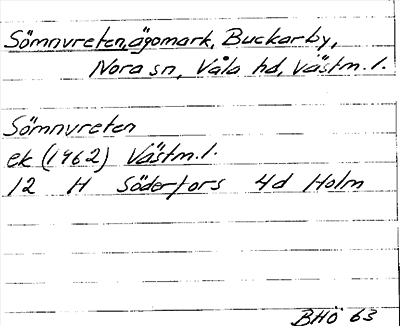 Sömnvreten, ägomark, Buckarby,
Nora sn, Våla hd, Västm. l.
Sömnvreten
ek (1962) Västm. l.
12 H Söderfors 4d Holm
BHÖ 63